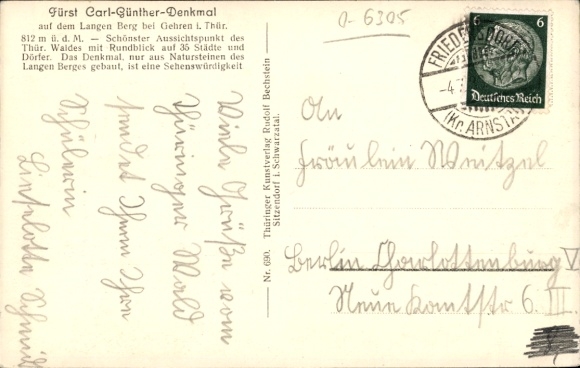 Fürst Carl-Günther-Denkmal
auf dem Langen Berg bei Gehren i. Thür.
812 m ü. d. M. — Schönster Aussichtspunkt des
Thür. Waldes mit Rundblick auf 35 Städte und
Dörfer. Das Denkmal, nur aus Natursteinen des
Langen Berges gebaut, ist eine Sehenswürdigkeit
Viele Grüße vom
Thüringer Wald
sendet Ihnen Ihre
Schülerin
Lieselotte Schmidt
Nr. 690. Thüringer Kunstverlag Rudolf Bechstein
Sitzendorf i. Schwarzatal.
o-6305
6 6
Deutsches Reich
(Kr. ARNSTA
An
Fräulein Weitzel
Berlin Charlottenburg V
Neue Kantstr 6. III.